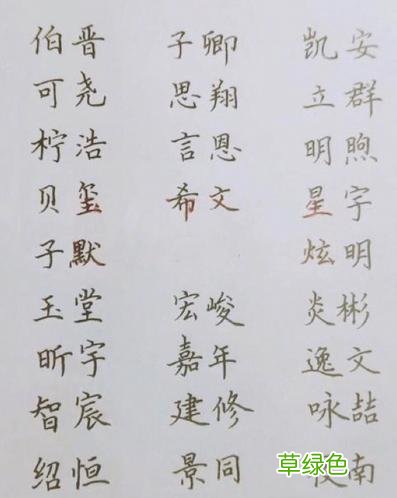 伯晋 子卿 凯安
可尧 思翔 立群
柠浩 言恩 明煦
贝玺 希文 星宇
子默 炫明
玉堂 宏峻 炎彬
昕宇 嘉年 逸文
智宸 建修 咏喆
绍恒 景同 南
草绿色